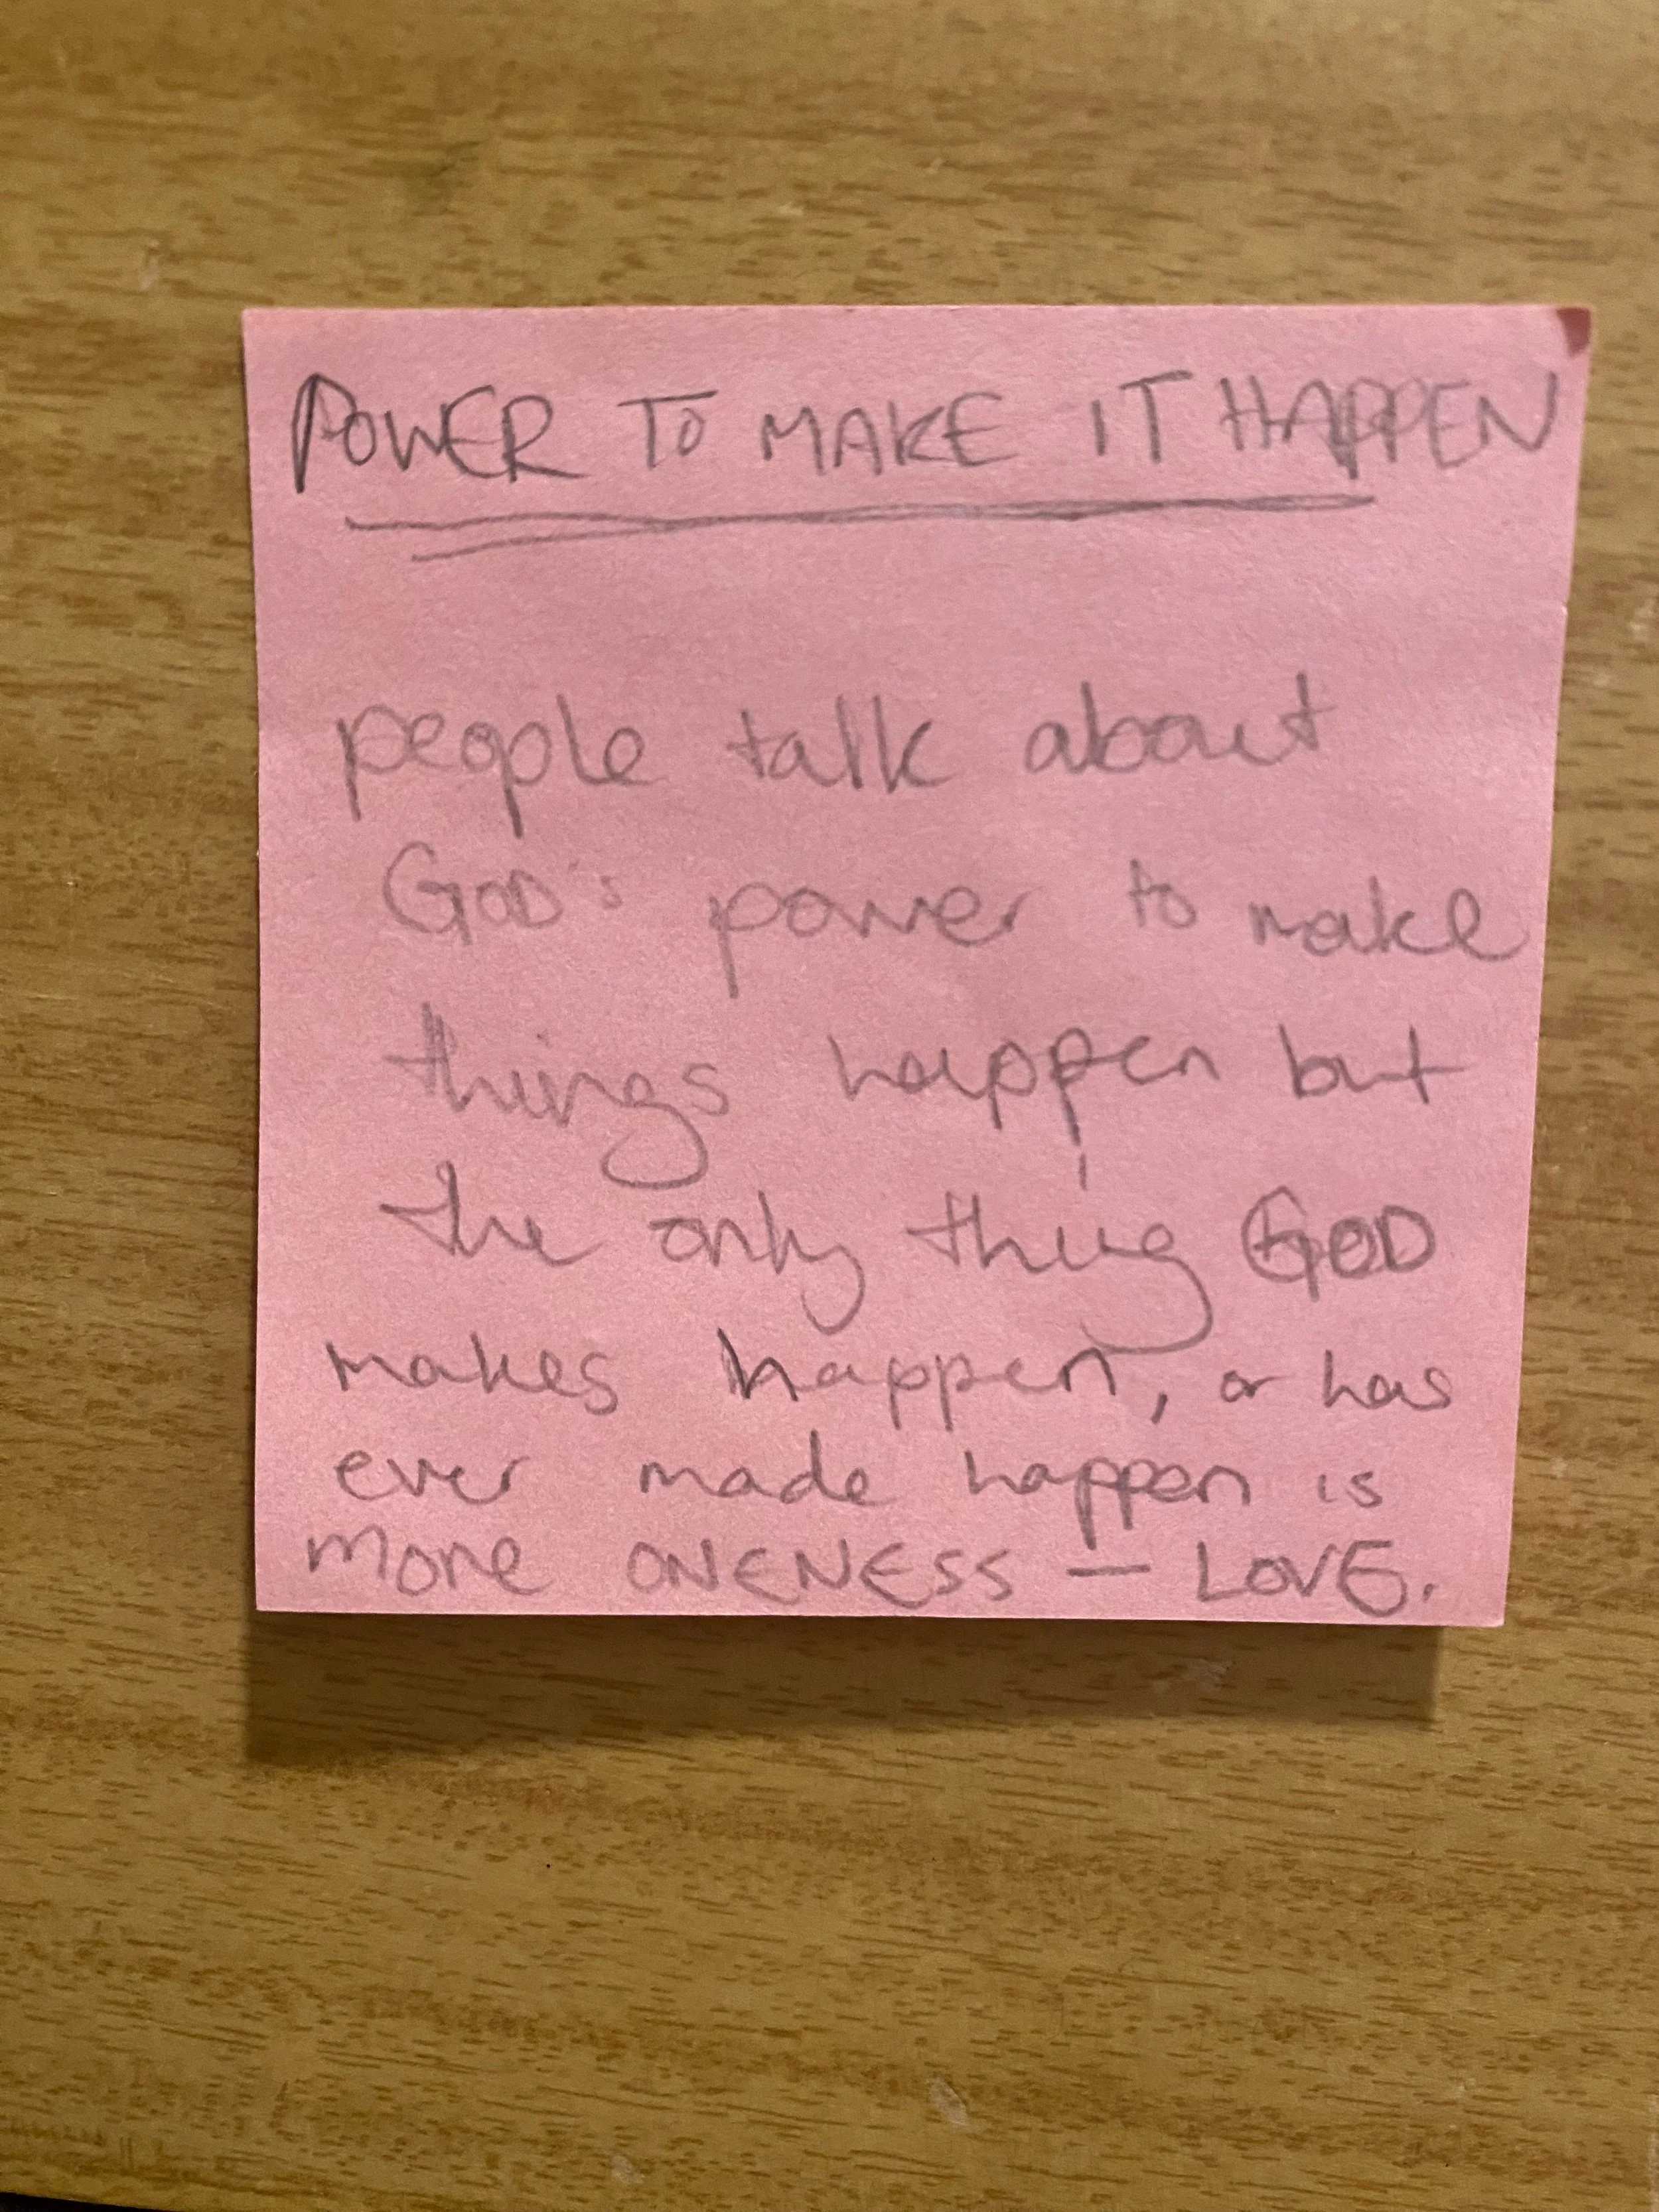 POWER TO MAKE IT HAPPEN
people talk about
GOD's power to make
things happen but
the only thing GOD
makes happen, or has
ever made happen is
more ONENESS — LOVE.